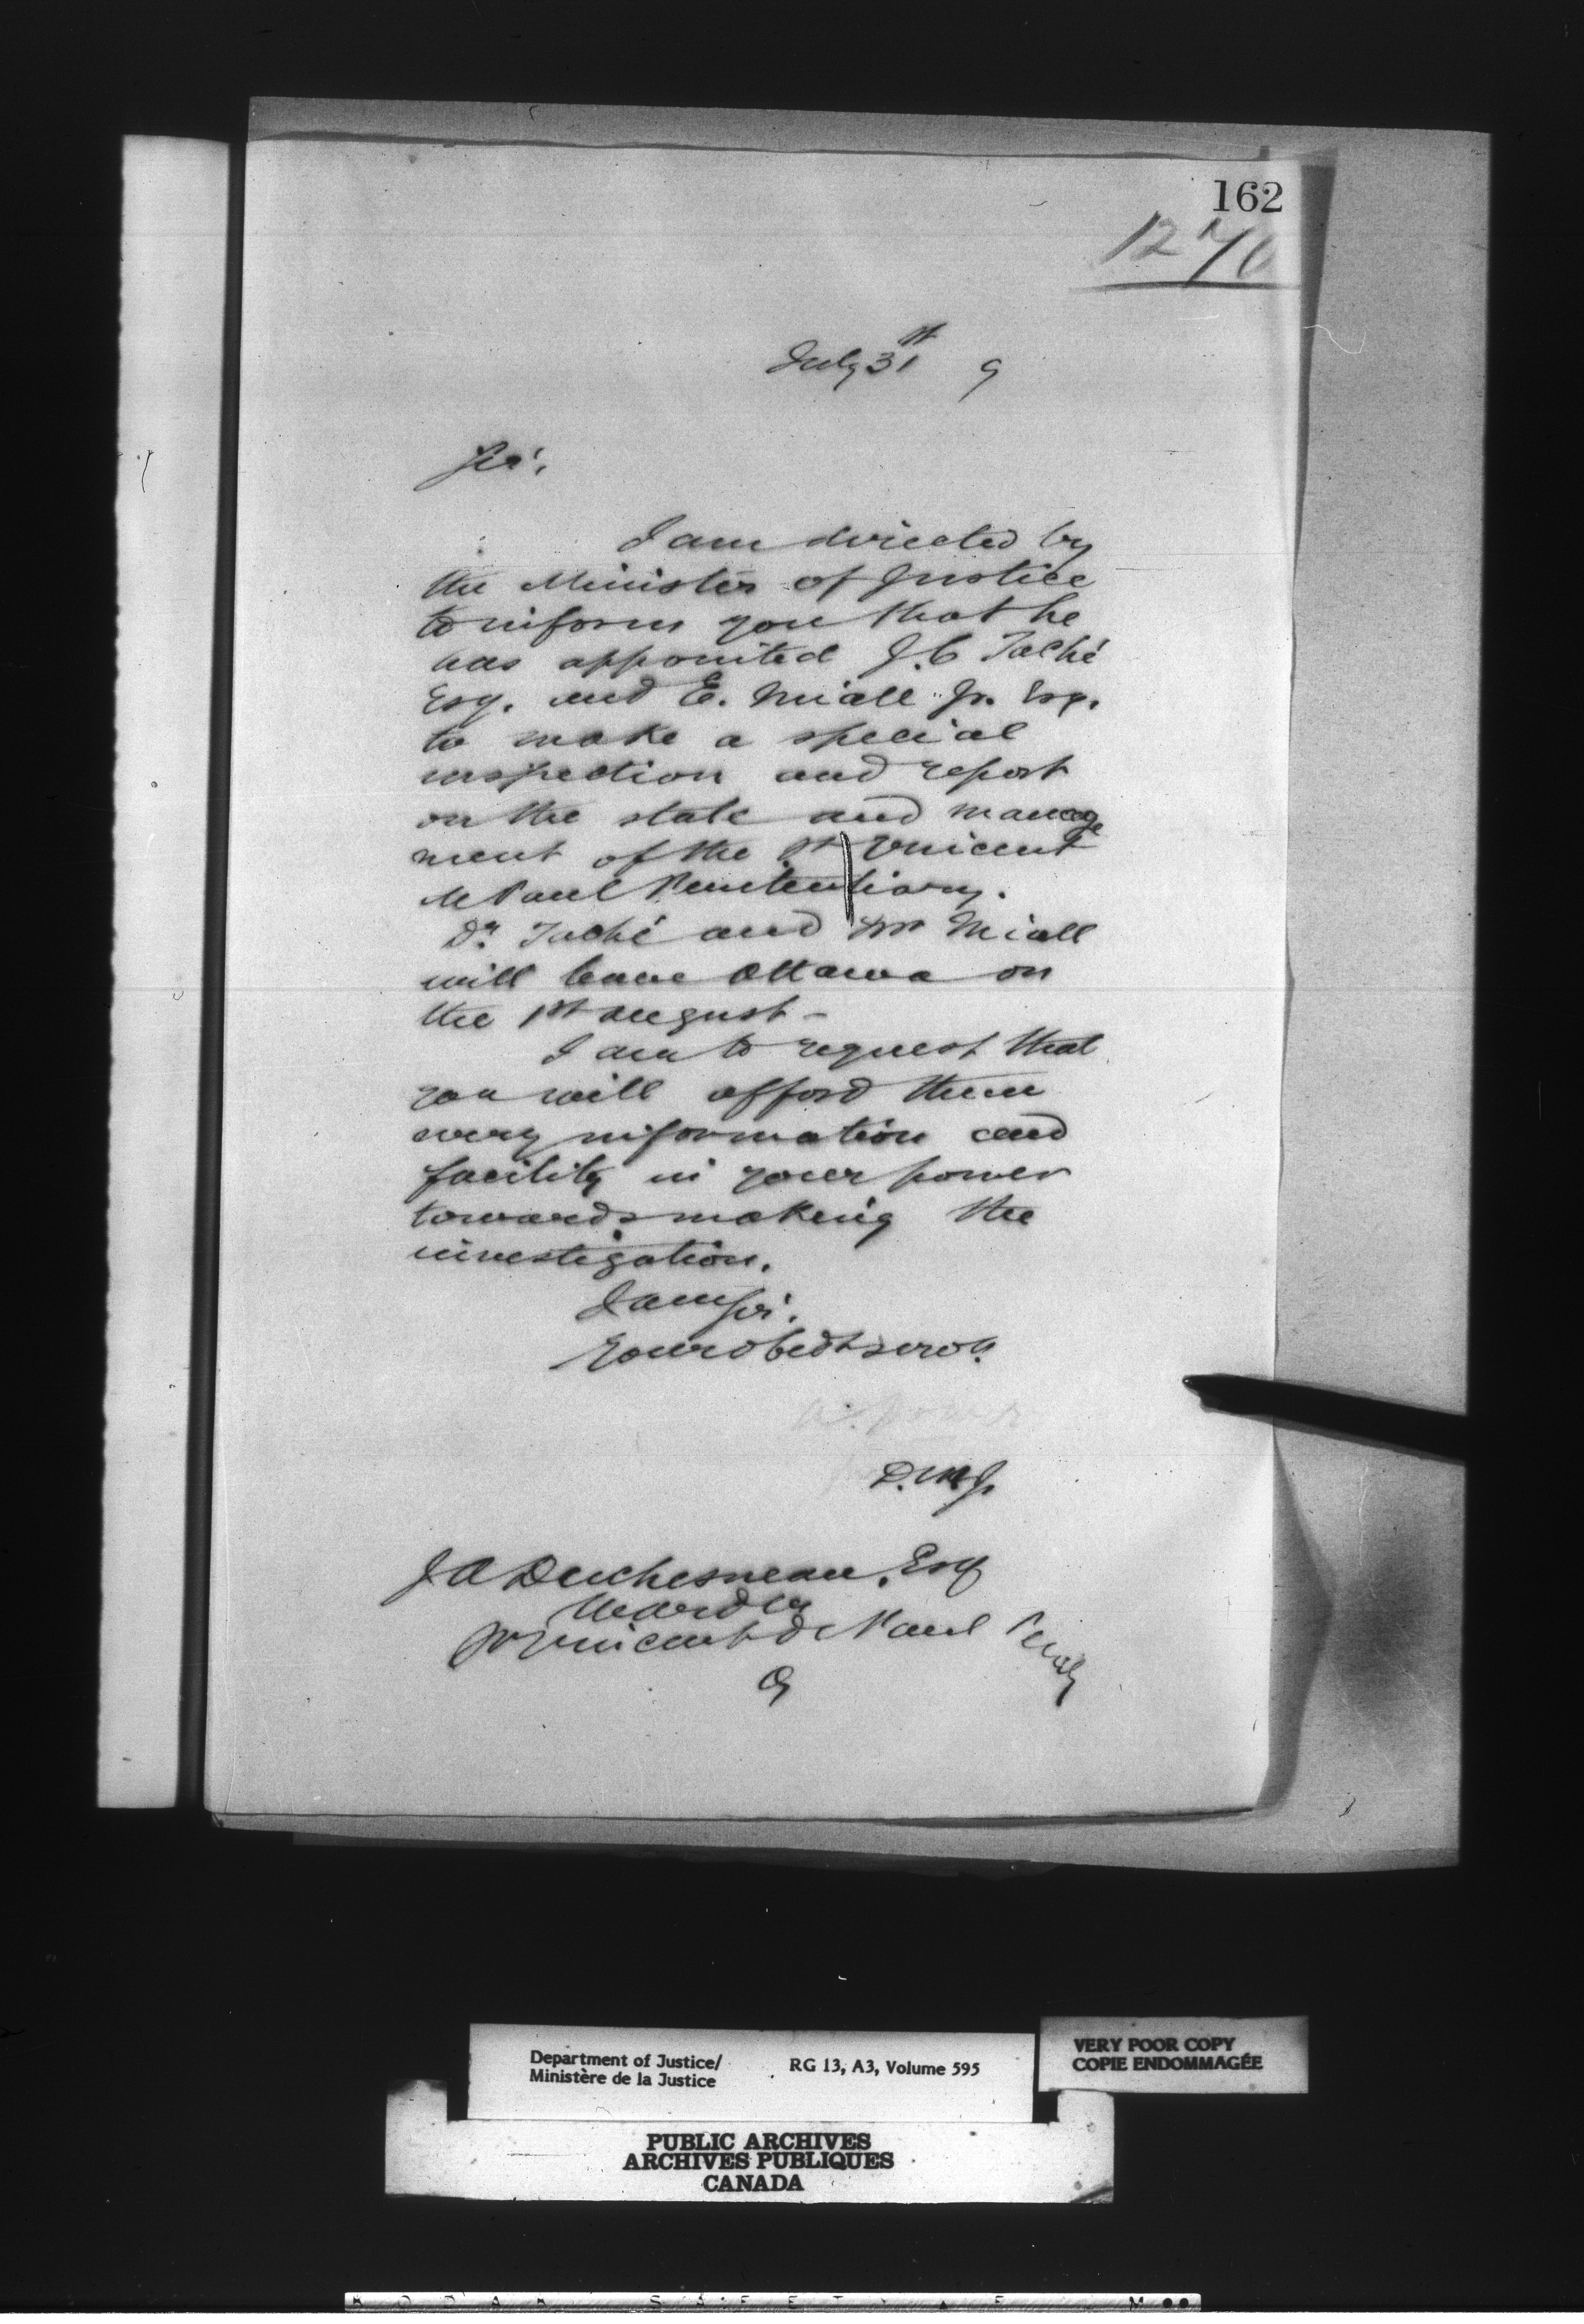 162
1270
July 31st 9
Sir,
I am directed by
the Minister of Justice
to inform you that he
has appointed J. C Taché
Esq. and E. Miall Jr. Esq.
to make a special
inspection and report
on the state and manage
ment of the St Vincent
de Paul Penitentiary.
Dr. Taché and Mr Miall
will leave Ottawa on
the 1st August -
I am to request that
you will afford them
every information and
facility in your power
towards making the
investigation.
I am Sir,
Your obedt servt.
D. M J.
J A Duchesneau, Esq
Warden
St Vincent de Paul Penty
Q
Department of Justice/
Ministère de la Justice
RG 13, A3, Volume 595
VERY POOR COPY
COPIE ENDOMMAGÉE
PUBLIC ARCHIVES
ARCHIVES PUBLIQUES
CANADA